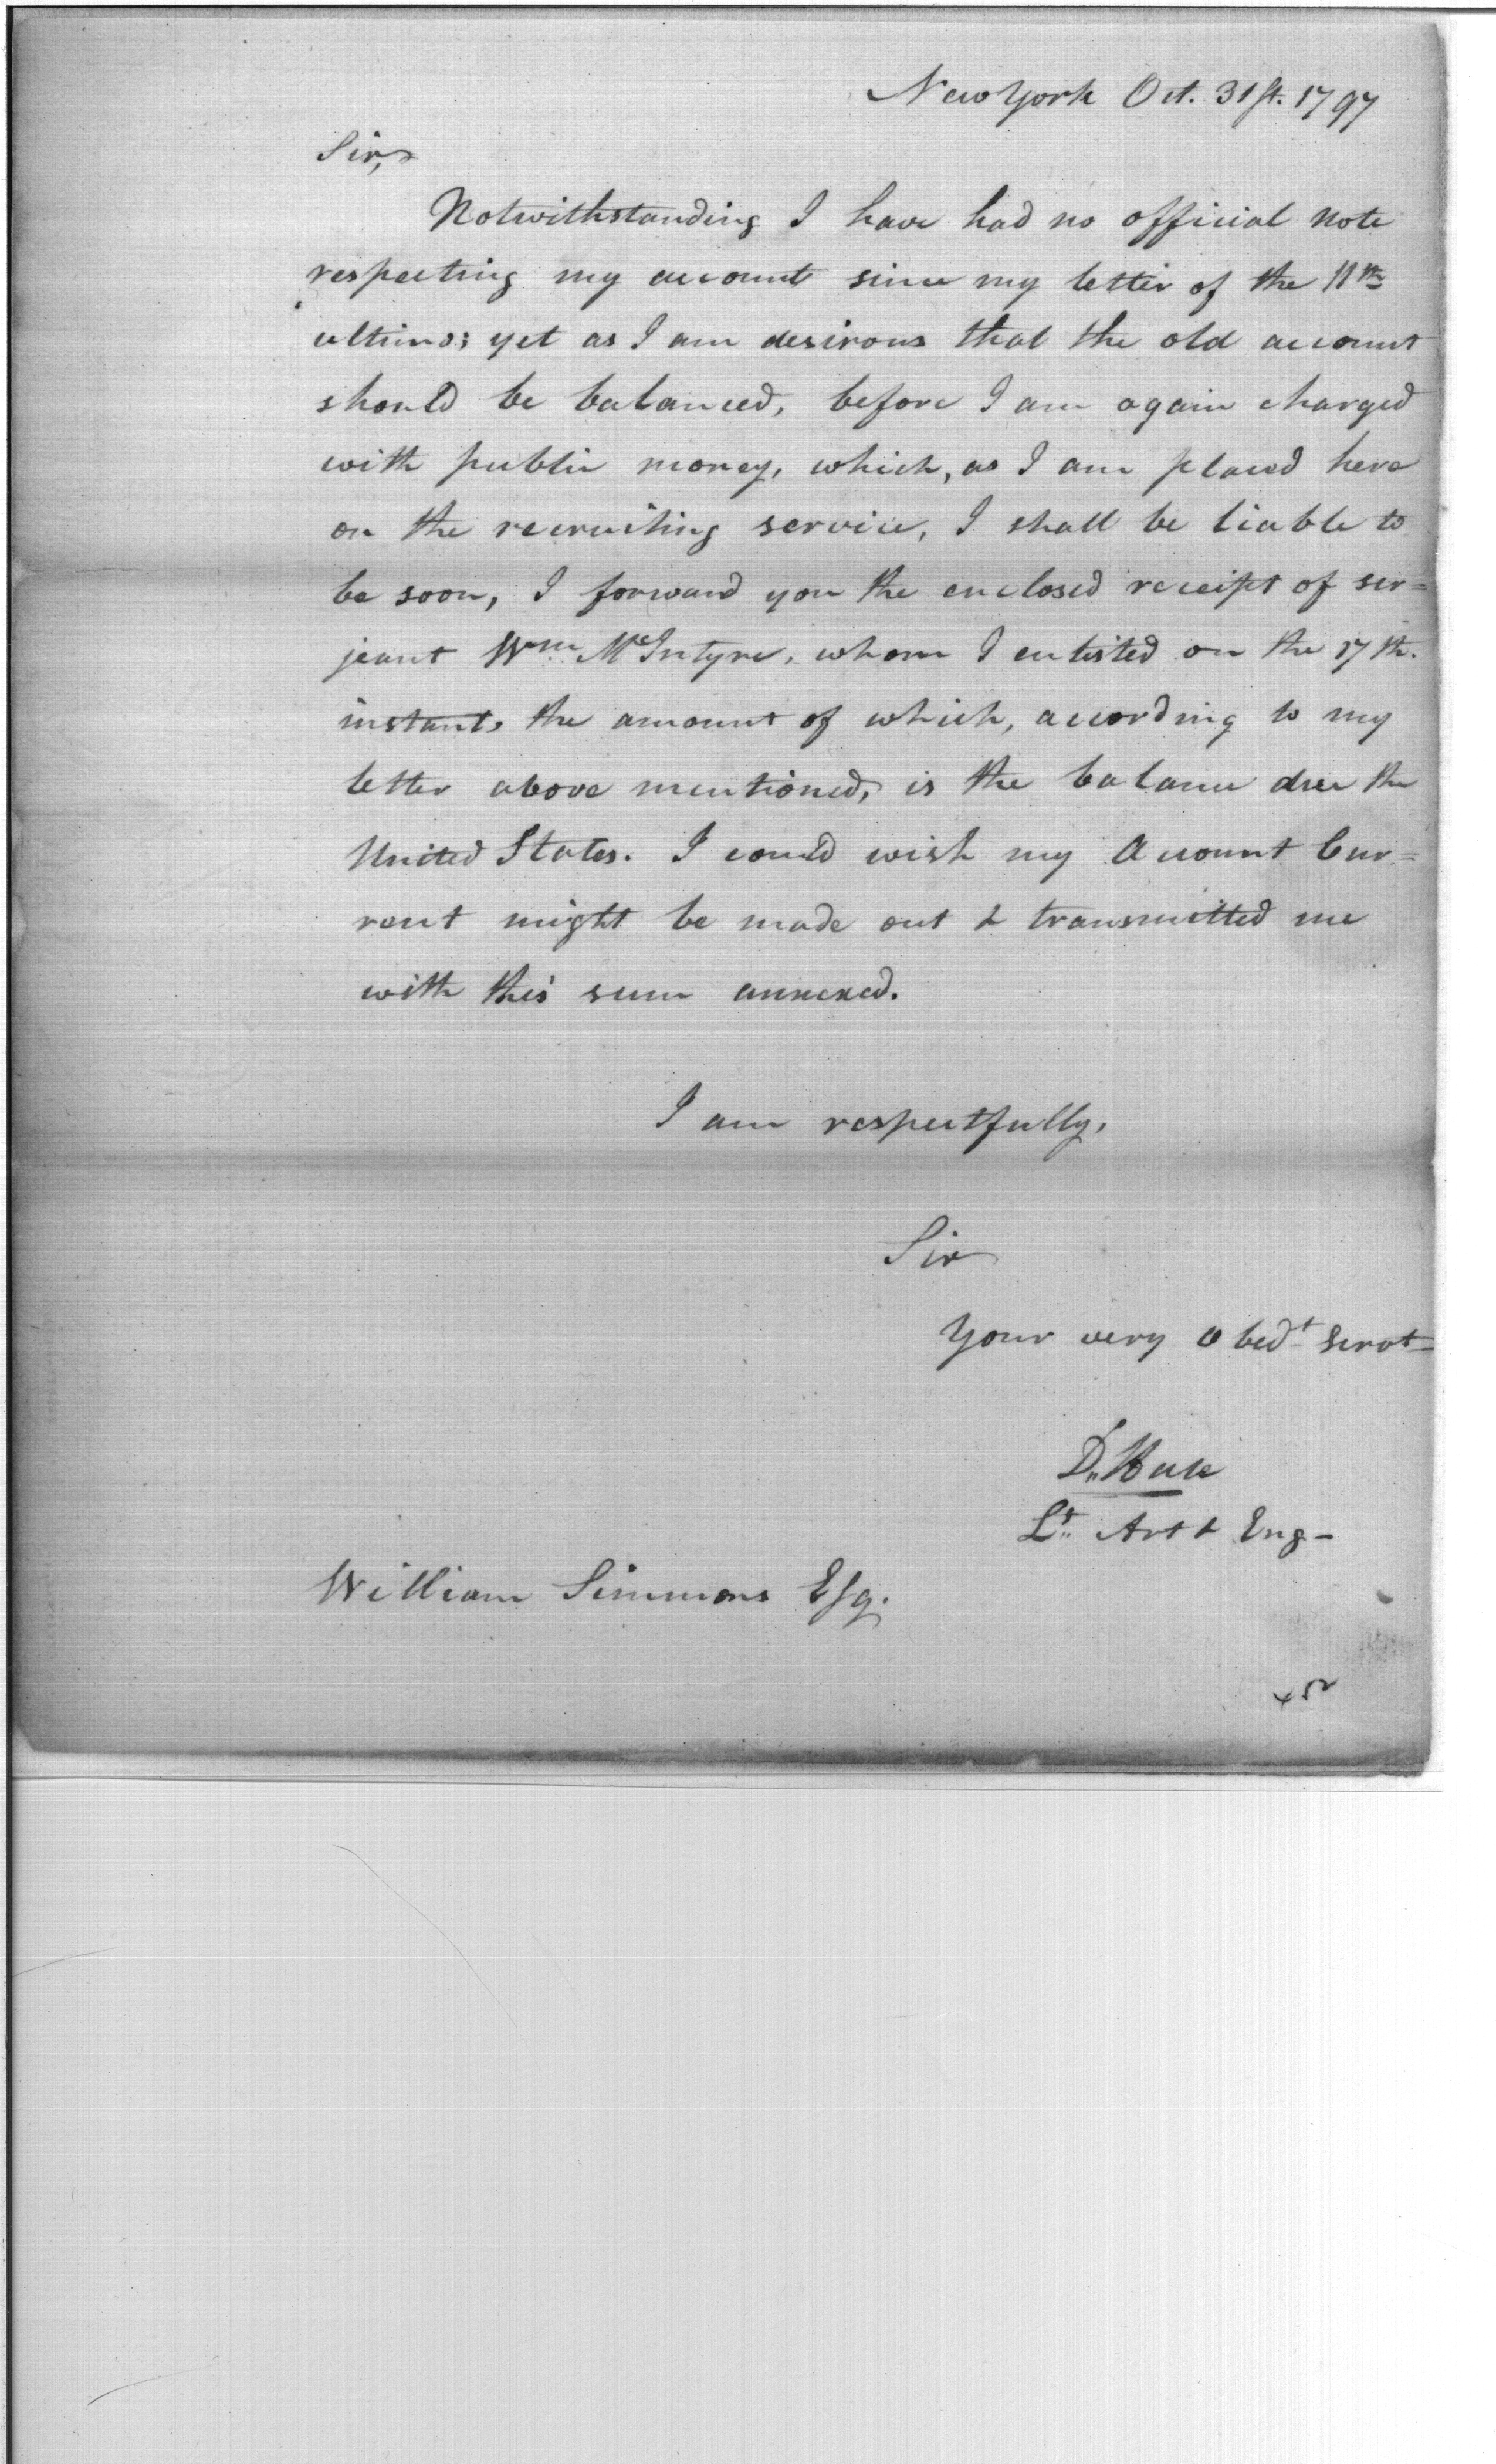 New York Oct. 31st. 1797
Sir,
Notwithstanding I have had no official note
respecting my accounts since my letter of the 11th
ultimo; yet as I am desirous that the old account
should be balanced, before I am again charged
with public money, which, as I am placed here
on the recruiting service, I shall be liable to
be soon, I forward you the enclosed receipt of ser=
jeant Wm. McIntyre, whom I enlisted on the 17th.
instant, the amount of which, according to my
letter above mentioned, is the balance due the
United States. I could wish my Account Cur=
rent might be made out & transmitted me
with this sum annexed.
I am respectfully,
Sir
Your very Obedt Servt
D.
Lt. Art & Eng-
William Simmons Esq.